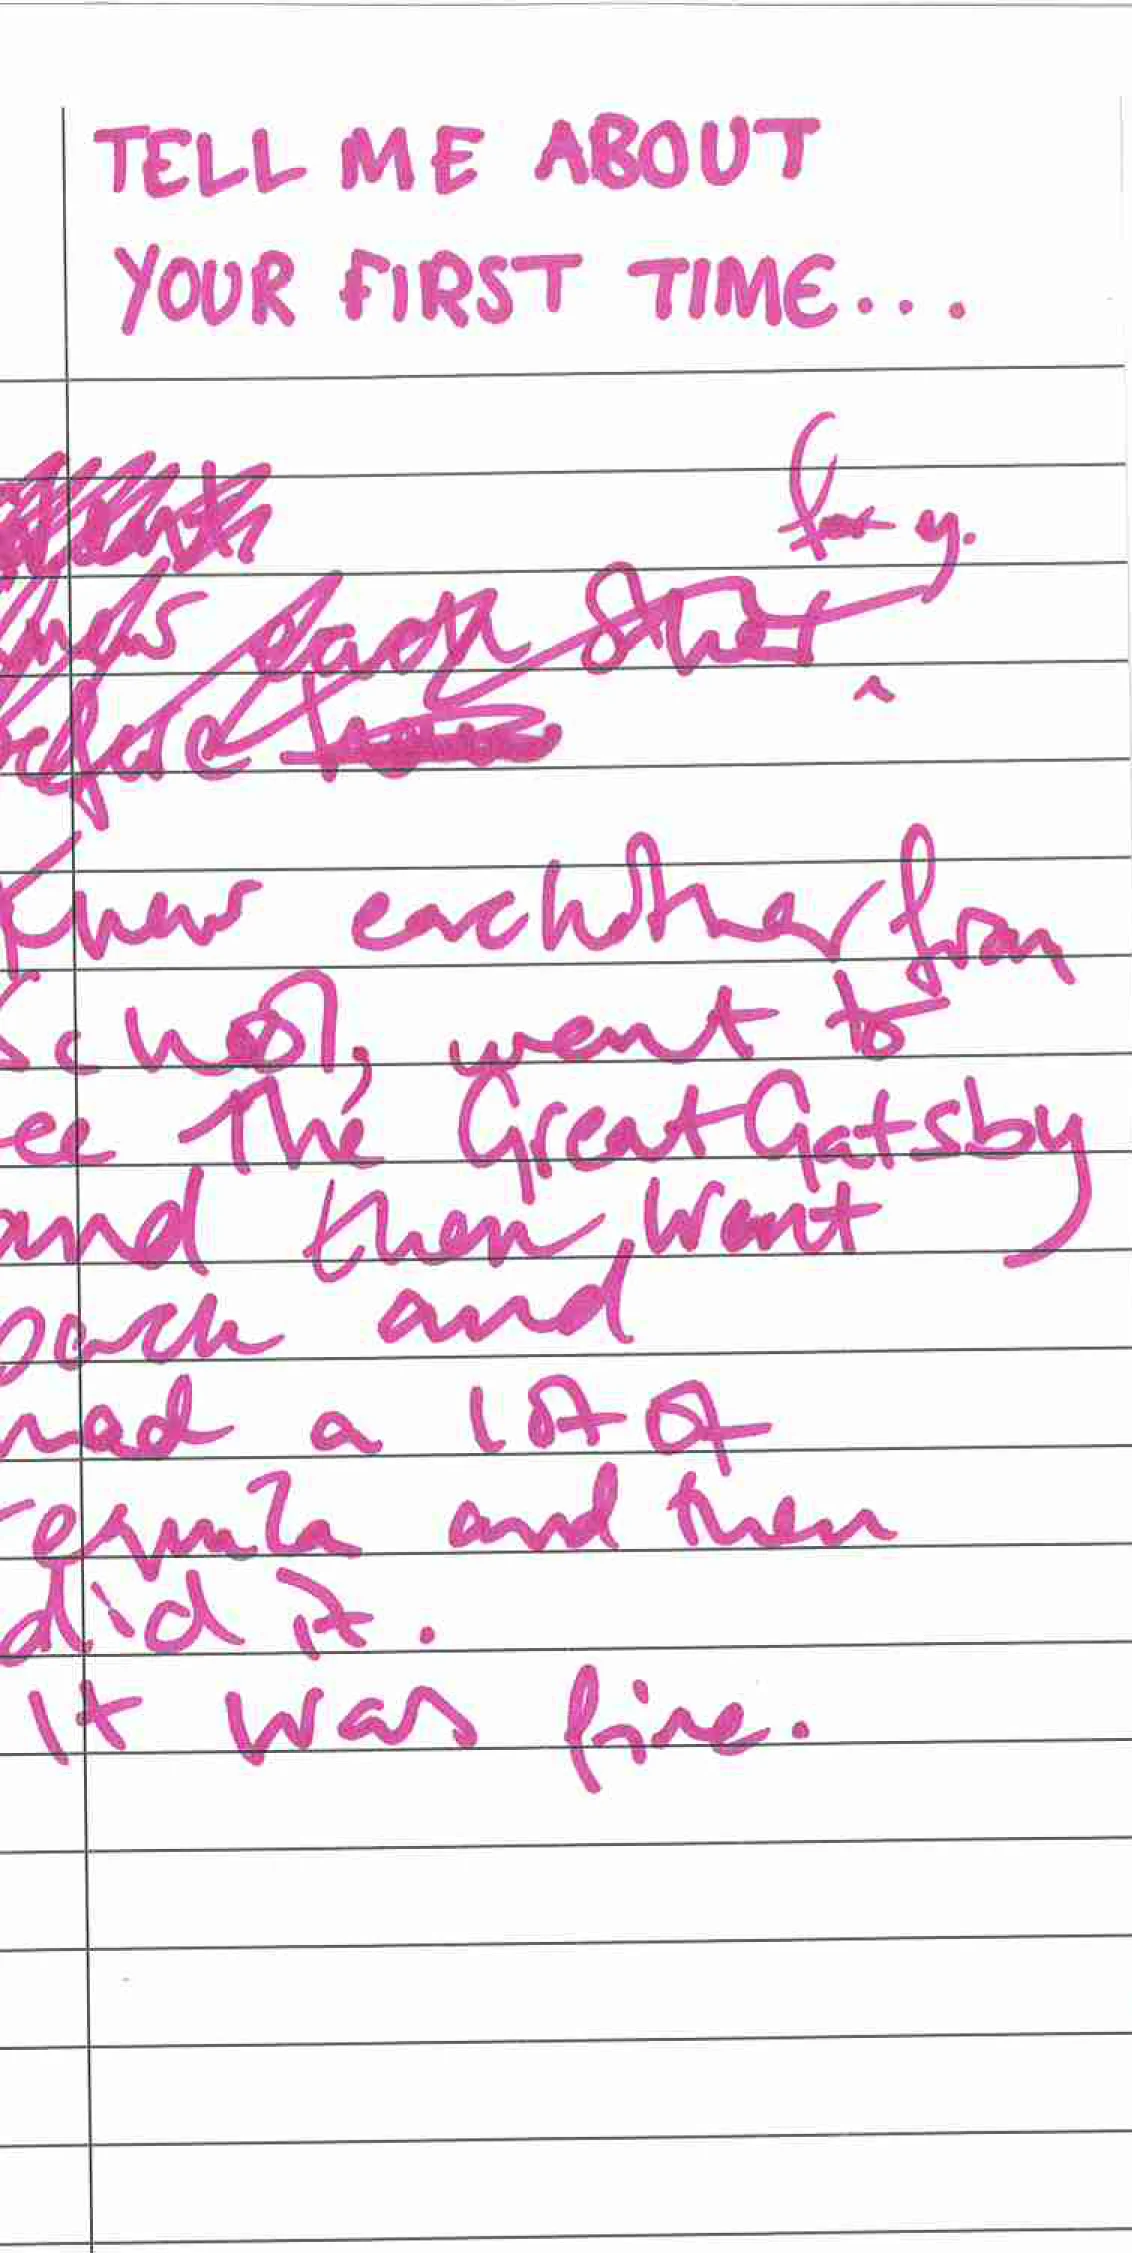 TELL ME ABOUT
YOUR FIRST TIME...
each other
before
Knew eachother from
School, went to
ee The Great Gatsby
and then went
back and
had a lot of
tequila and then
did it.
It was fine.